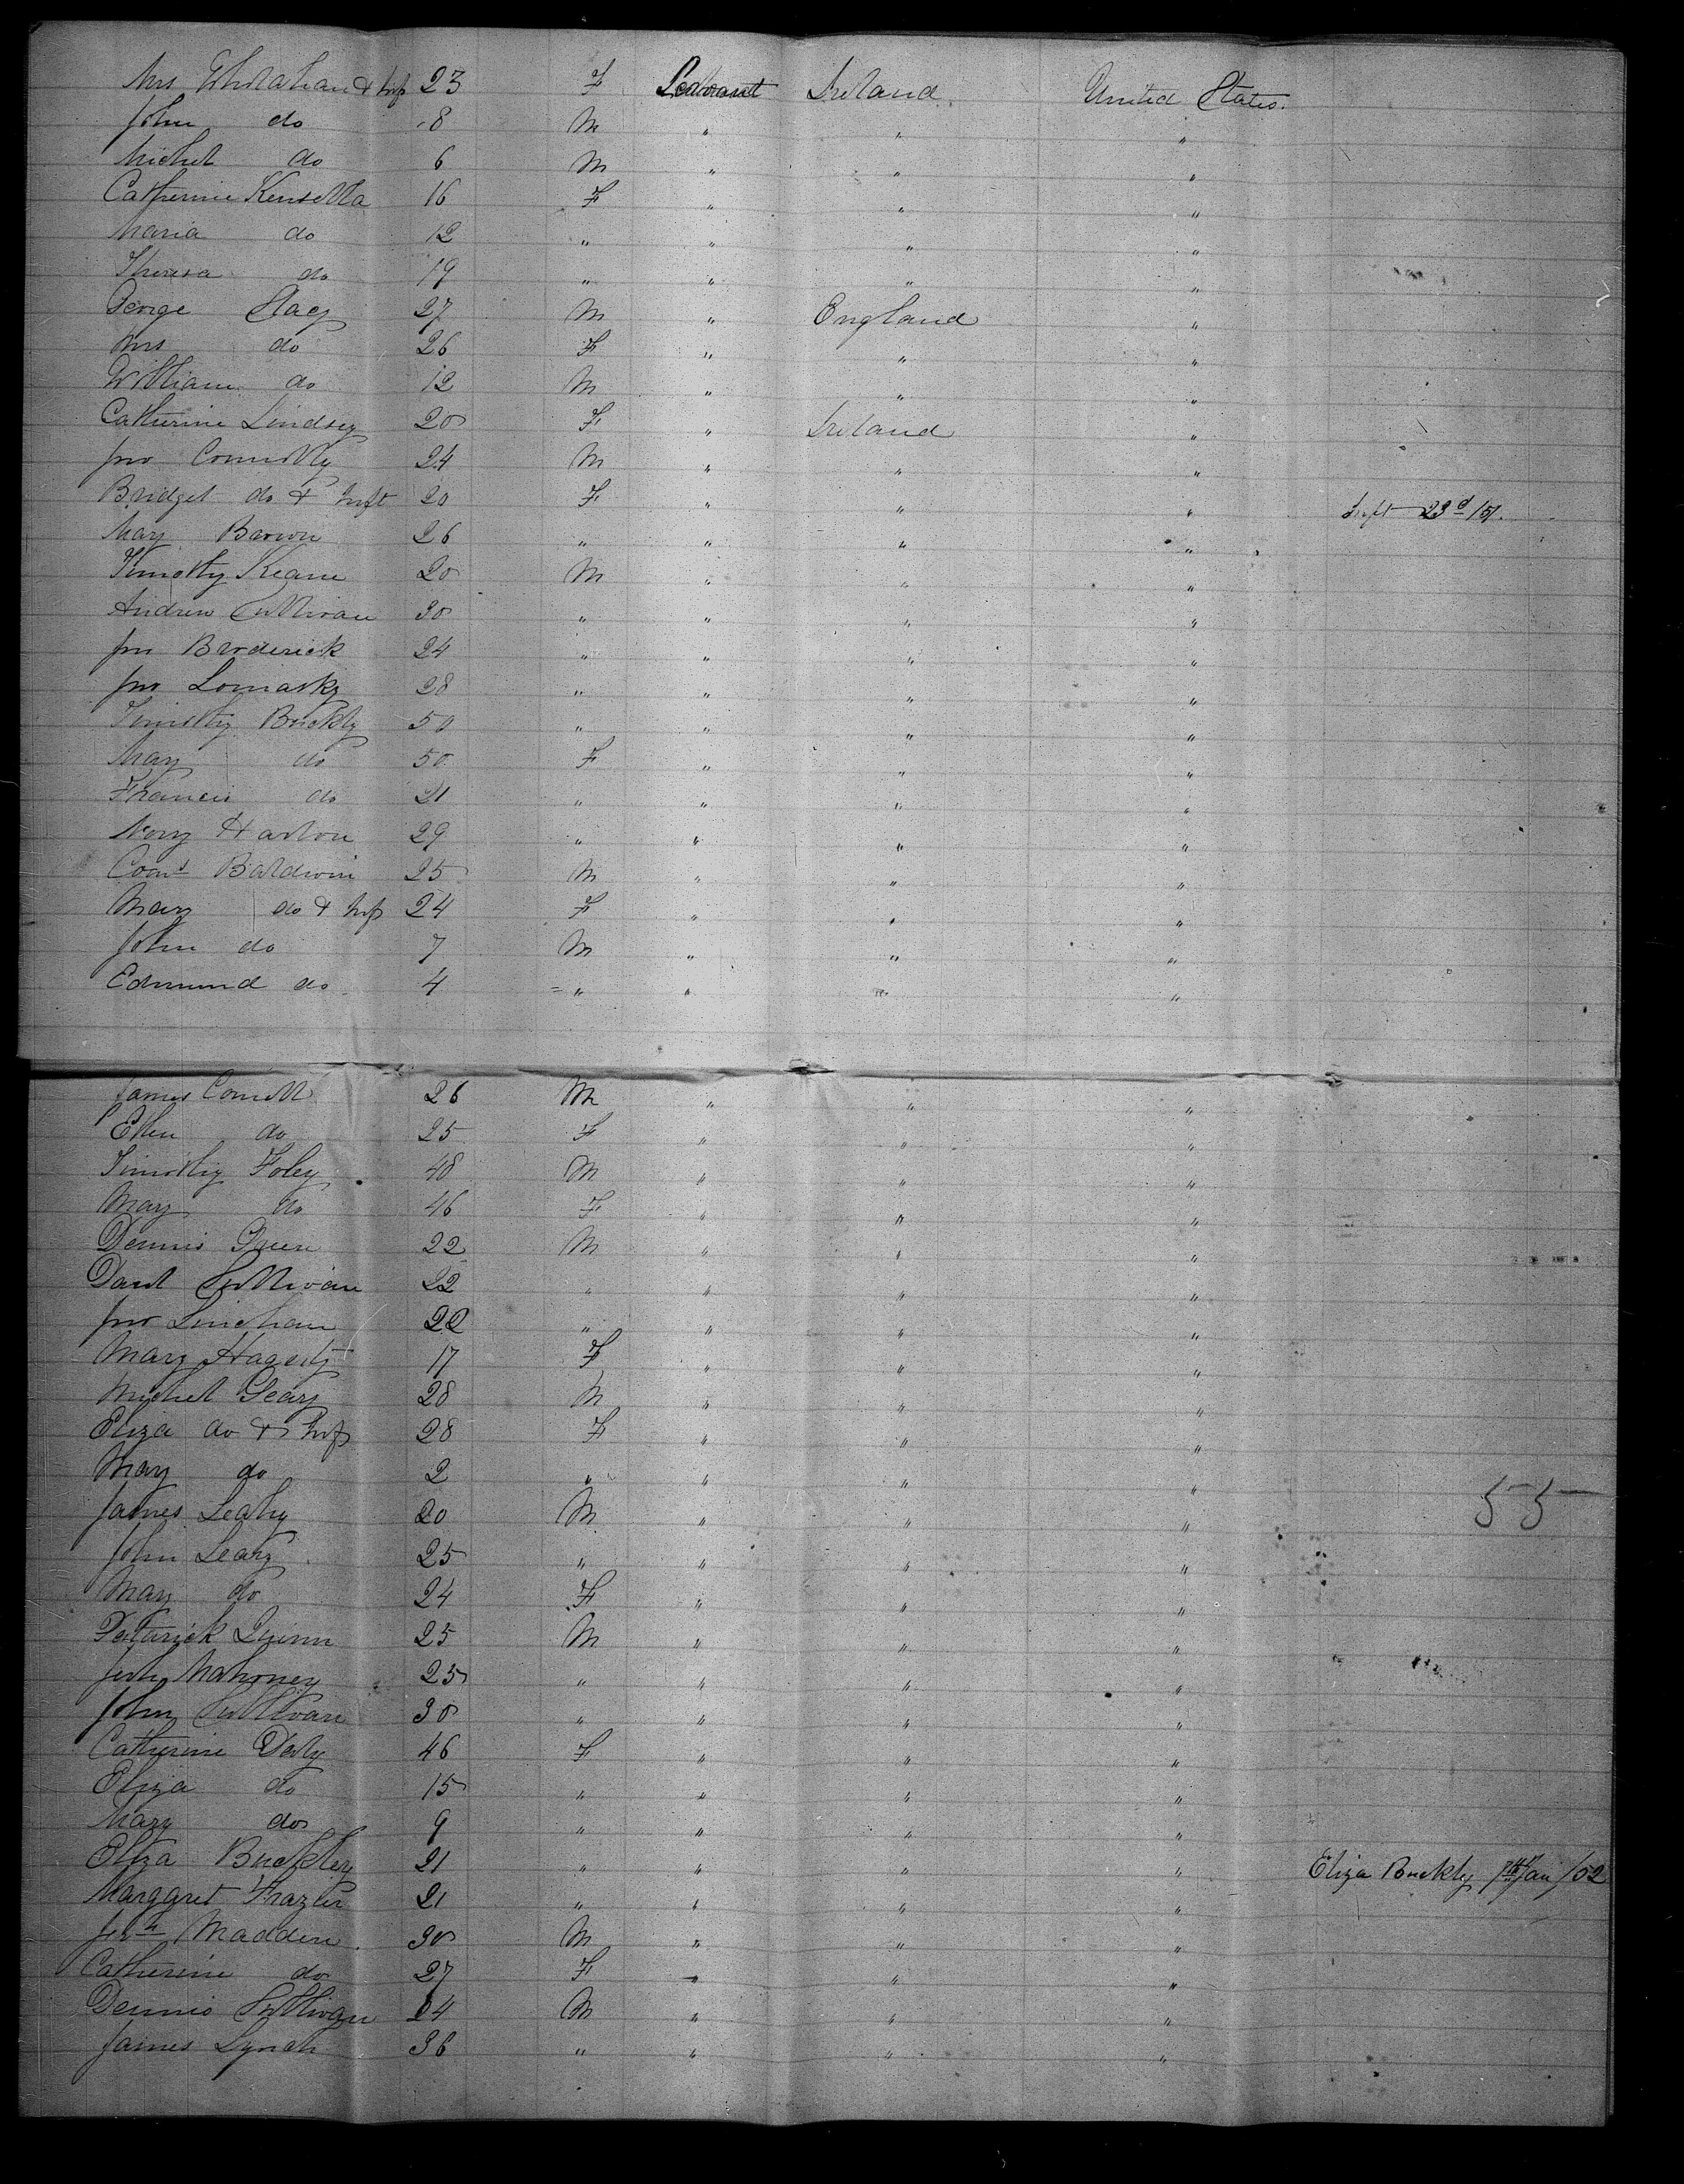 Mrs & Inf 23 F Ireland United States.
John do 8 M " " "
Michel do 6 M " " "
Catherine Kensella 16 F " " "
Maria do 12 " " " "
Theresa do 19 " " " "
George Stacy 27 M " England "
Mrs do 26 F " " "
William do 12 M " " "
Catherine Lindsey 20 F " Ireland "
Jno Connolly 24 M " " "
Bridget do & Inft 20 F " " " 23d /51.
Mary Brown 26 " " " "
Timothy Keane 20 M " " "
Andrew Sullivan 30 " " " "
Jno Broderick 24 " " " "
Jno 28 " " " "
Timothy Buckly 50 " " " "
Mary do 50 F " " "
Francis do 21 " " " "
Nory 29 " " " "
Baldwin 25 M " " "
Mary do & Inf 24 F " " "
John do 7 M " " "
Edmund do 4 " " " "
James Connell 26 M " " "
Ellen do 25 F " " "
Timothy Foley 48 M " " "
Mary do 46 F " " "
Dennis Green 22 M " " "
Danl Sullivan 22 " " " "
Jno Linehan 22 " " " "
Mary Hagerty 17 F " " "
Michel Geary 28 M " " "
Eliza do & Inf 28 F " " "
Mary do 2 " " " "
James Leahy 20 M " " " 55
John Leary 25 " " " "
Mary do 24 F " " "
Patrick Quinn 25 M " " "
Mahoney 25 " " " "
John Sullivan 30 " " " "
Catherine Daly 46 F " " "
Eliza do 15 " " " "
Mary do 9 " " " "
Eliza Buckley 21 " " " " Eliza Buckly 7th Jan /52
Margaret Frazier 21 " " " "
Madden 30 M " " "
Catherine do 27 F " " "
Dennis Sullivan 24 M " " "
James Lynch 36 " " " "